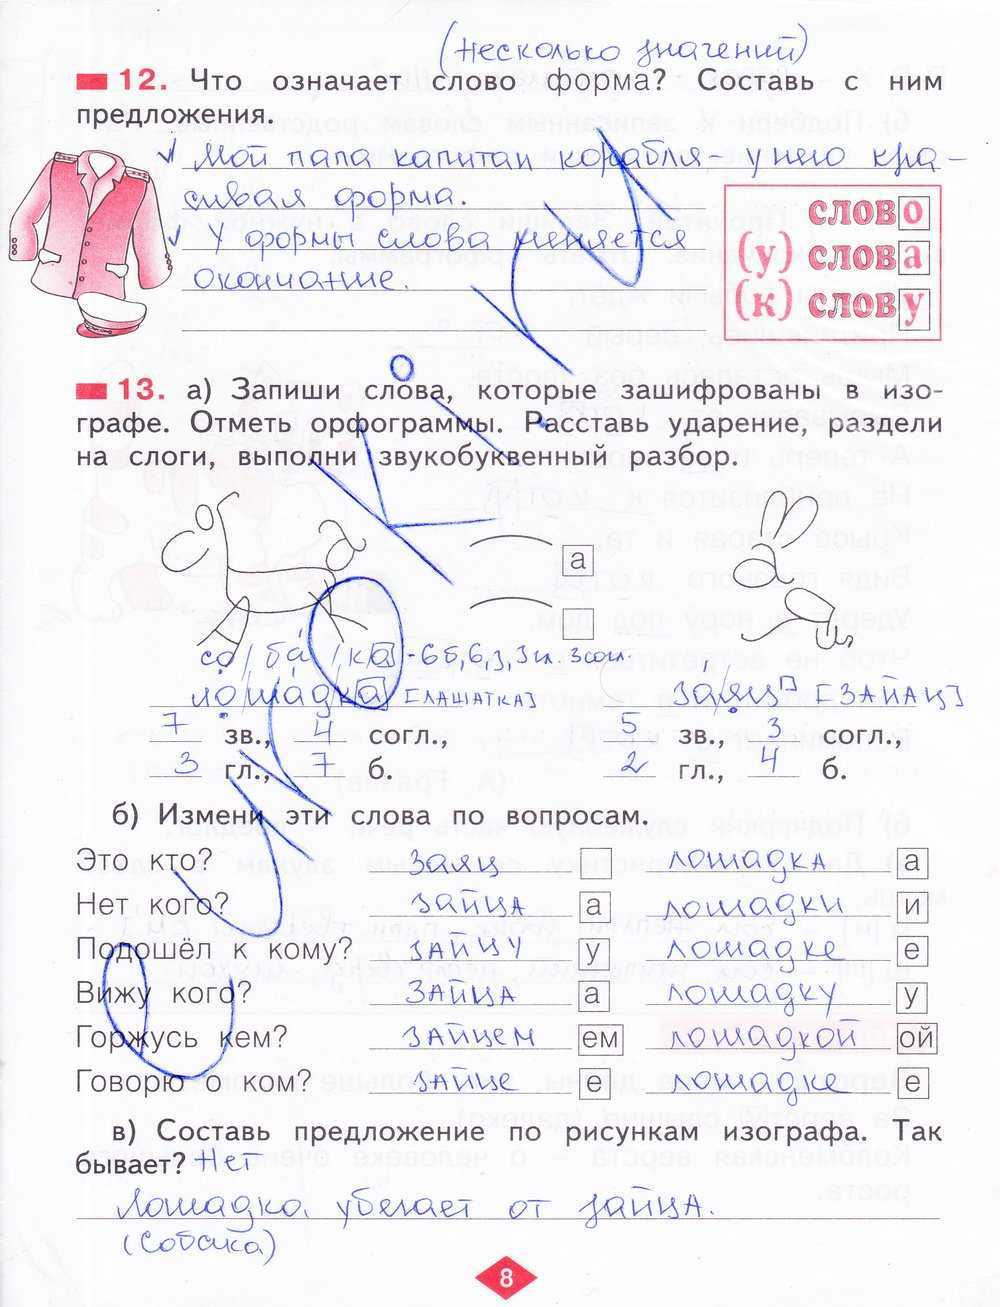 (несколько значений)
12. Что означает слово форма? Составь с ним
предложения.
Мой папа капитан корабля, у него кра-
сивая форма.
У формы слова меняется
окончание.
слово
(у) слова
(к) слову
13. а) Запиши слова, которые зашифрованы в изо-
графе. Отметь орфограммы. Расставь ударение, раздели
на слоги, выполни звукобуквенный разбор.
а
со/ба/ка - 6 б, 6 з, 3 гл. 3 согл.
лошадка [лашатка] заяц [зайац]
7 зв., 4 согл., 5 зв., 3 согл.,
3 гл., 7 б. 2 гл., 4 б.
б) Измени эти слова по вопросам.
Это кто? заяц лошадка а
Нет кого? зайца а лошадки и
Подошёл к кому? зайцу у лошадке е
Вижу кого? зайца а лошадку у
Горжусь кем? зайцем ем лошадкой ой
Говорю о ком? зайце е лошадке е
в) Составь предложение по рисункам изографа. Так
бывает? Нет
Лошадка убегает от зайца.
(собака)
8